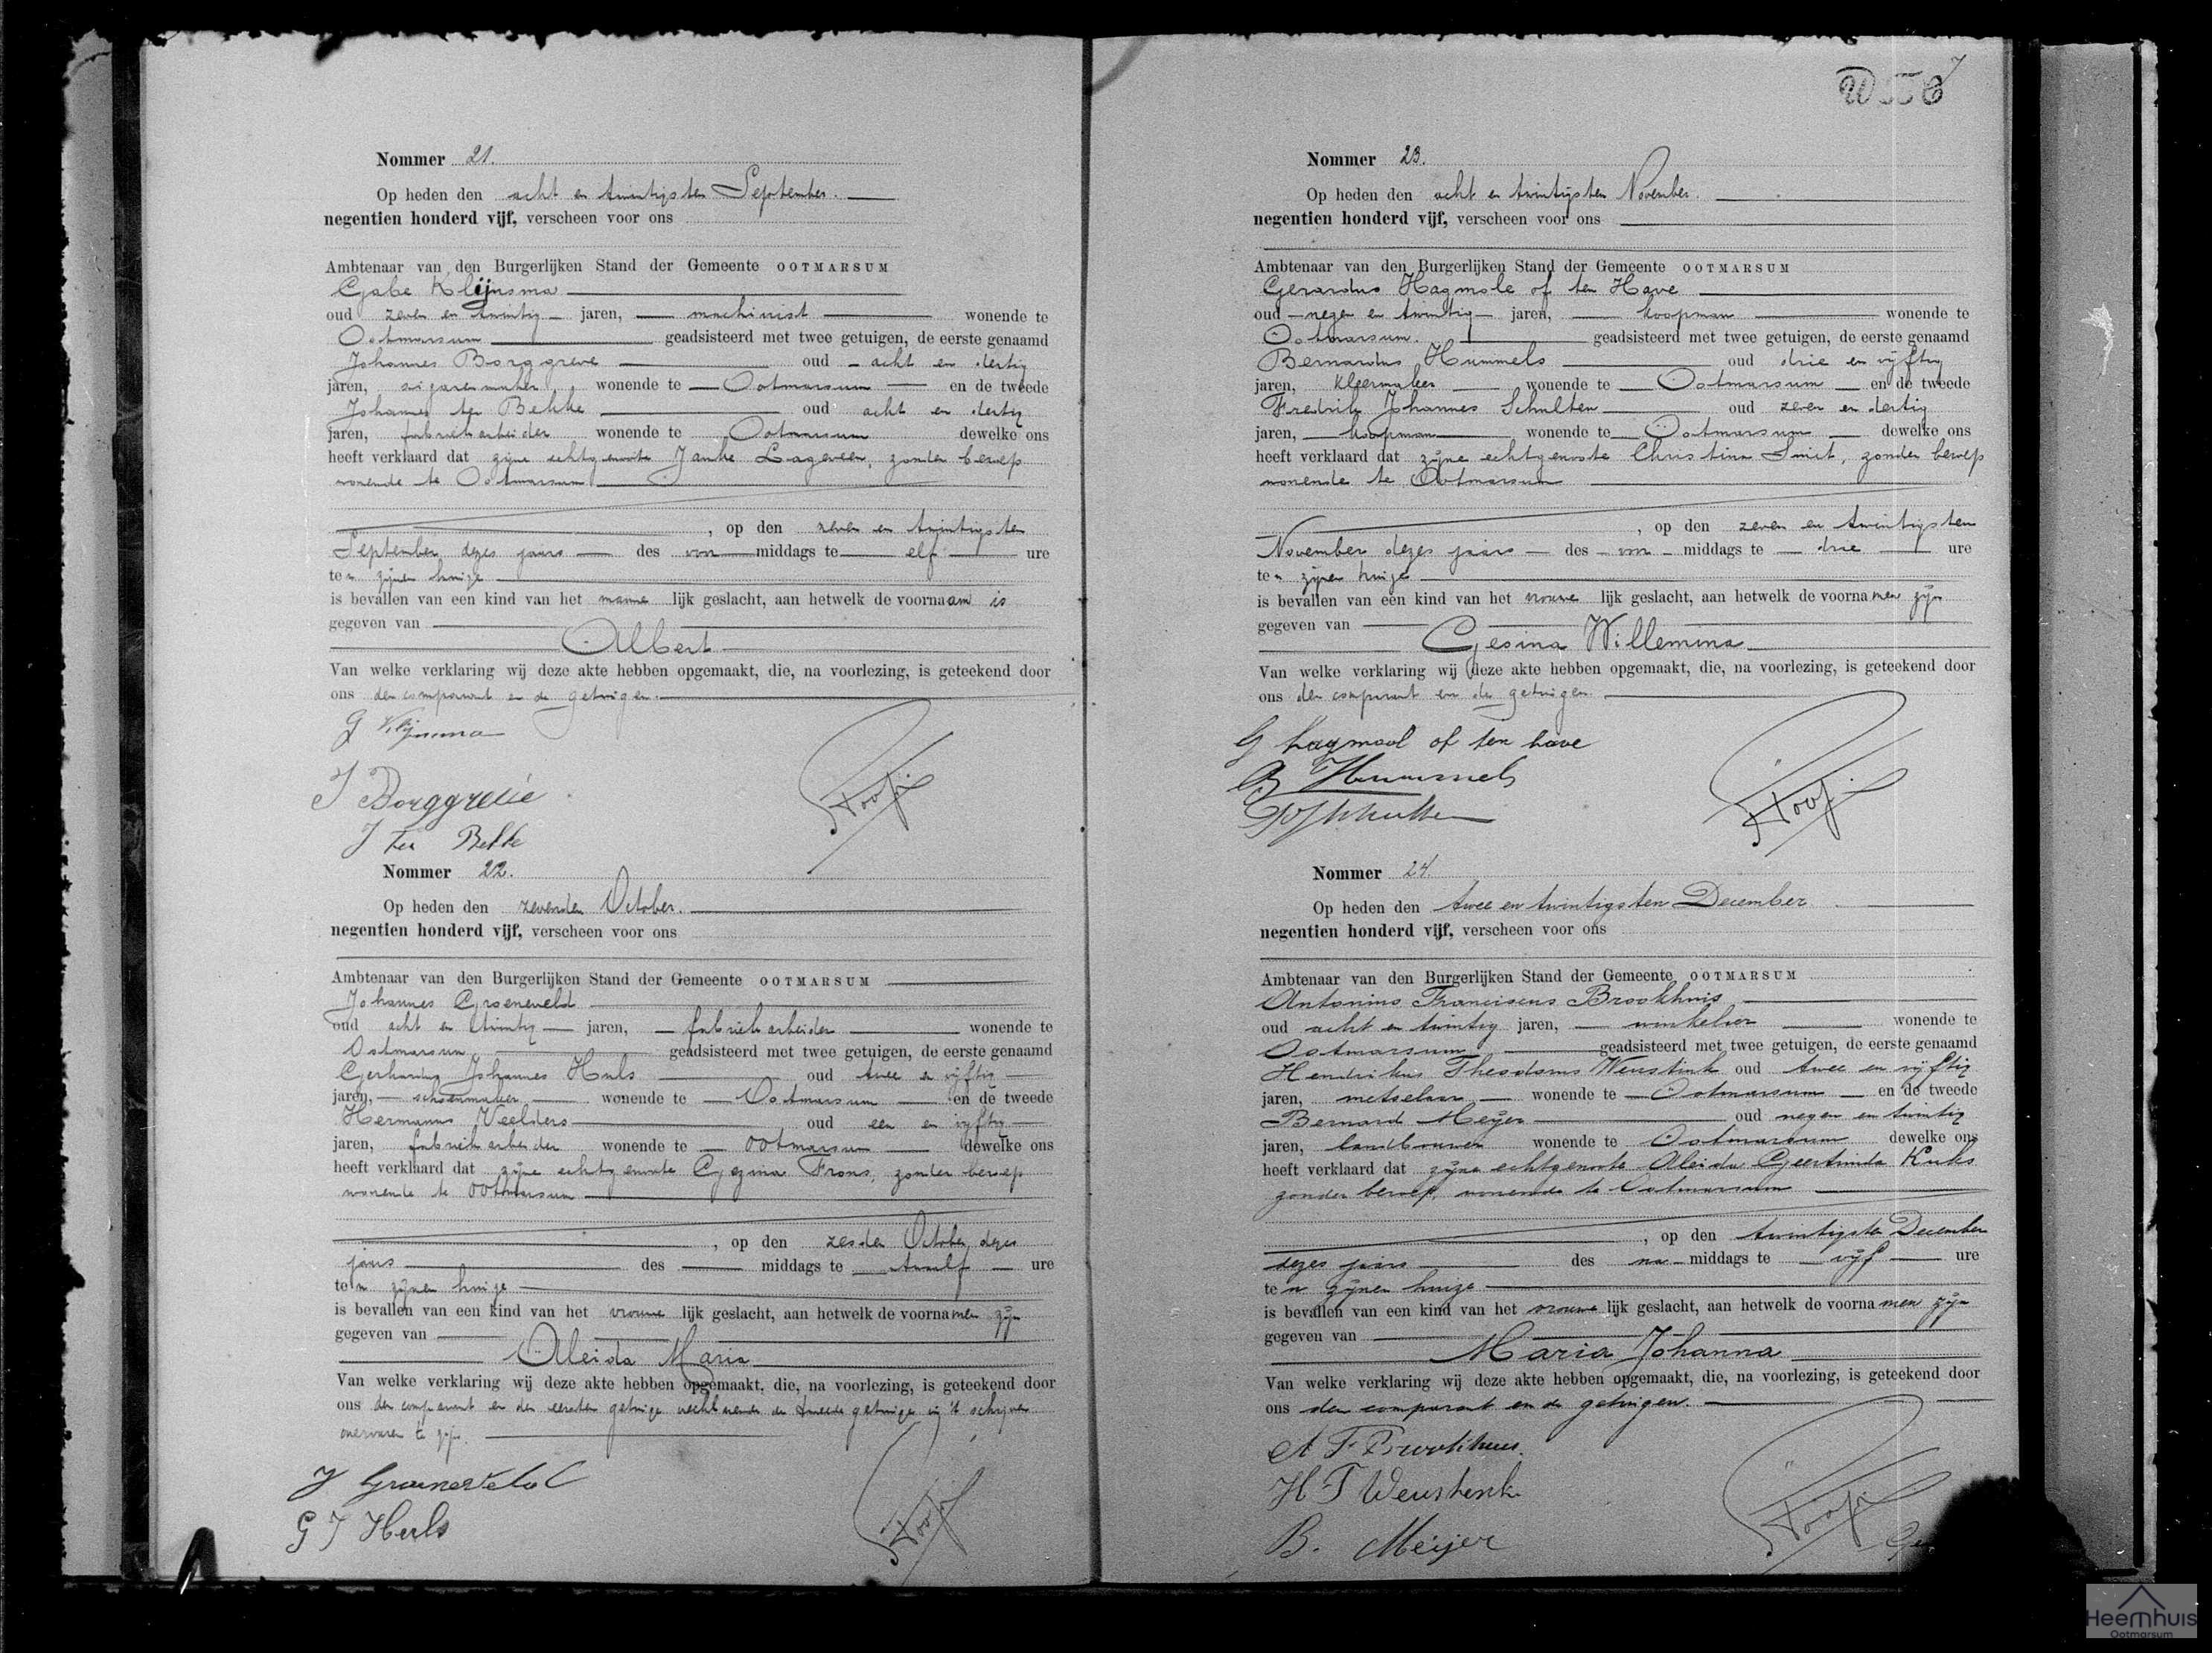 Nommer 21.
Op heden den acht en twintigsten September.
negentien honderd vijf, verscheen voor ons
Ambtenaar van den Burgerlijken Stand der Gemeente OOTMARSUM
Gabe Kleijnsma
oud zeven en twintig jaren, machinist wonende te
Ootmarsum geadsisteerd met twee getuigen, de eerste genaamd
Johannes Borggreve oud acht en dertig
jaren, sigarenmaker wonende te Ootmarsum en de tweede
Johannes ter Bekke oud acht en dertig
jaren, fabriekarbeider wonende te Ootmarsum dewelke ons
heeft verklaard dat zijne echtgenoote Janke Lageveen, zonder beroep
wonende te Ootmarsum
, op den zeven en twintigsten
September dezes jaars des voor middags te elf ure
ten zijnen huize
is bevallen van een kind van het manne lijk geslacht, aan hetwelk de voornaam is
gegeven van
Albert
Van welke verklaring wij deze akte hebben opgemaakt, die, na voorlezing, is geteekend door
ons den comparant en de getuigen.
G Klijnsma
J Borggreve
J ter Bekke
Nommer 22.
Op heden den zevenden October.
negentien honderd vijf, verscheen voor ons
Ambtenaar van den Burgerlijken Stand der Gemeente OOTMARSUM
Johannes Groeneveld
oud acht en twintig jaren, fabriekarbeider wonende te
Ootmarsum geadsisteerd met twee getuigen, de eerste genaamd
Gerhardus Johannes Huls oud twee en vijftig
jaren, schoenmaker wonende te Ootmarsum en de tweede
Hermanus Veelders oud een en vijftig
jaren, fabriekarbeider wonende te Ootmarsum dewelke ons
heeft verklaard dat zijne echtgenoote Gezina Frons, zonder beroep
wonende te Ootmarsum
, op den zesden October dezes
jaars des middags te twaalf ure
ten zijnen huize
is bevallen van een kind van het vrouwe lijk geslacht, aan hetwelk de voornamen zijn
gegeven van
Aleida Maria
Van welke verklaring wij deze akte hebben opgemaakt, die, na voorlezing, is geteekend door
ons den comparant en den eersten getuige verklarende de tweede getuige in 't schrijven
onervaren te zijn.
J Groeneveld
G J Huls
7
Nommer 23.
Op heden den acht en twintigsten November.
negentien honderd vijf, verscheen voor ons
Ambtenaar van den Burgerlijken Stand der Gemeente OOTMARSUM
Gerardus Hagmole of ten Have
oud negen en twintig jaren, koopman wonende te
Ootmarsum. geadsisteerd met twee getuigen, de eerste genaamd
Bernardus Hummels oud drie en vijftig
jaren, kleermaker wonende te Ootmarsum en de tweede
Fredrik Johannes Schulten oud zeven en dertig
jaren, koopman wonende te Ootmarsum dewelke ons
heeft verklaard dat zijne echtgenoote Christina Smit, zonder beroep
wonende te Ootmarsum
, op den zeven en twintigsten
November dezes jaars des voor middags te drie ure
ten zijnen huize
is bevallen van een kind van het vrouwe lijk geslacht, aan hetwelk de voornamen zijn
gegeven van
Gesina Willemina
Van welke verklaring wij deze akte hebben opgemaakt, die, na voorlezing, is geteekend door
ons den comparant en de getuigen.
G hagmool of ten have
B Hummels
Nommer 24.
Op heden den twee en twintigsten December
negentien honderd vijf, verscheen voor ons
Ambtenaar van den Burgerlijken Stand der Gemeente OOTMARSUM
Antonius Franciscus Brookhuis
oud acht en twintig jaren, winkelier wonende te
Ootmarsum geadsisteerd met twee getuigen, de eerste genaamd
Hendrikus Theodorus Weustink oud twee en vijftig
jaren, metselaar wonende te Ootmarsum en de tweede
Bernard Meijer oud negen en twintig
jaren, landbouwer wonende te Ootmarsum dewelke ons
heeft verklaard dat zijne echtgenoote Aleida Geertruida Kuks
zonder beroep, wonende te Ootmarsum
, op den twintigsten December
dezes jaars des na middags te vijf ure
ten zijnen huize
is bevallen van een kind van het vrouwe lijk geslacht, aan hetwelk de voornamen zijn
gegeven van
Maria Johanna
Van welke verklaring wij deze akte hebben opgemaakt, die, na voorlezing, is geteekend door
ons den comparant en de getuigen.
A F Brookhuis.
H T Weustenk
B. Meijer
Heemhuis
Ootmarsum